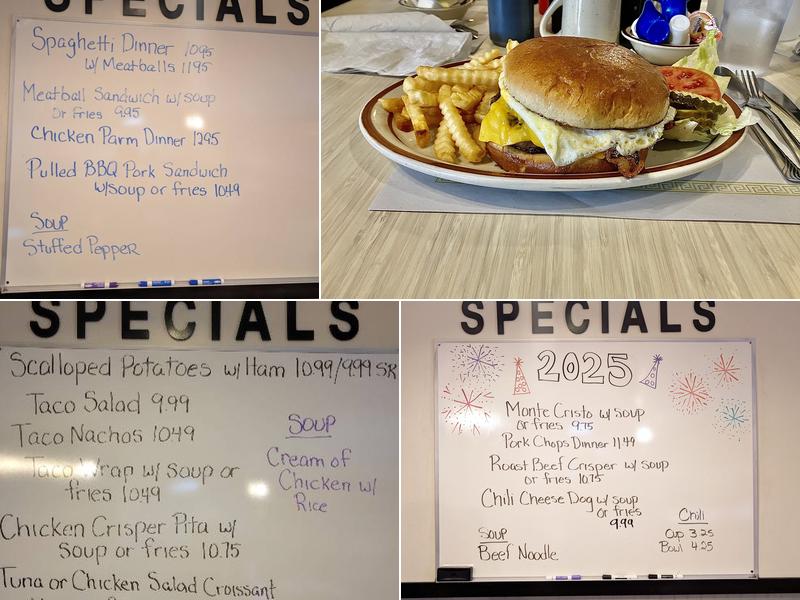 SPECIALS
Spaghetti Dinner 10.95
w/ Meatballs 11.95
Meatball Sandwich w/soup
or fries 9.95
Chicken Parm Dinner 12.95
Pulled BBQ Pork Sandwich
w/Soup or fries 10.49
Soup
Stuffed Pepper
SPECIALS
Scalloped Potatoes w/Ham 10.99/9.99 SR
Taco Salad 9.99
Taco Nachos 10.49
Taco Wrap w/ Soup or
fries 10.49
Chicken Crisper Pita w/
Soup or fries 10.75
Tuna or Chicken Salad Croissant
Soup
Cream of
Chicken w/
Rice
SPECIALS
2025
Monte Cristo w/ soup
or fries 9.75
Pork Chops Dinner 11.49
Roast Beef Crisper w/ soup
or fries 10.75
Chili Cheese Dog w/ soup
or fries
9.99
Soup
Beef Noodle
Chili
Cup 3.25
Bowl 4.25